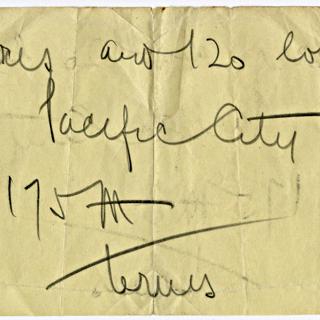 and 120 lo
Pacific City
175 M
terms